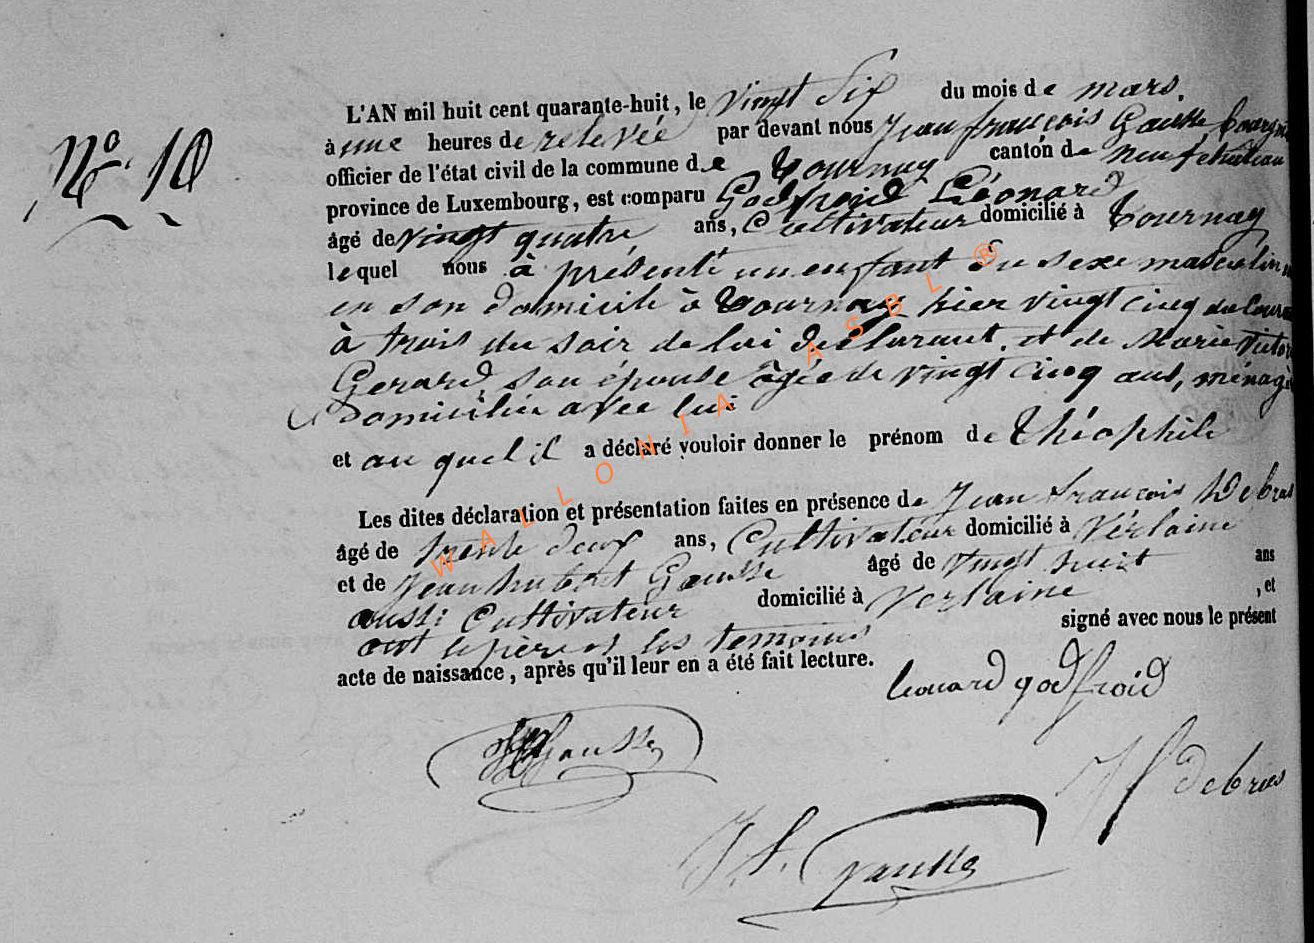 Nº 10
L'AN mil huit cent quarante-huit, le vingt six du mois de mars,
à une heures de relevée par devant nous Jean françois Gausse
officier de l'état civil de la commune de Tournay canton de neufchateau
province de Luxembourg, est comparu Godfroid Léonard
âgé de vingt quatre ans, Cultivateur domicilié à Tournay
lequel nous à présenté un enfant du sexe masculin
en son domicile à Tournay hier vingt cinq du
à trois du soir de lui déclarant, et de Marie
Gerard, son épouse âgée de vingt cinq ans,
Domiciliée avec lui
et au quel il a déclaré vouloir donner le prénom de Théophile
Les dites déclaration et présentation faites en présence de Jean françois
âgé de trente deux ans, Cultivateur domicilié à Verlaine
et de Jean hubert Gausse âgé de vingt huit ans
aussi Cultivateur domicilié à Verlaine , et
ont le père et les temoins signé avec nous le présent
acte de naissance, après qu'il leur en a été fait lecture.
Leonard godfroid
Gausse
Jf debras
J. h. Gausse
WALLONIA ASBL ®